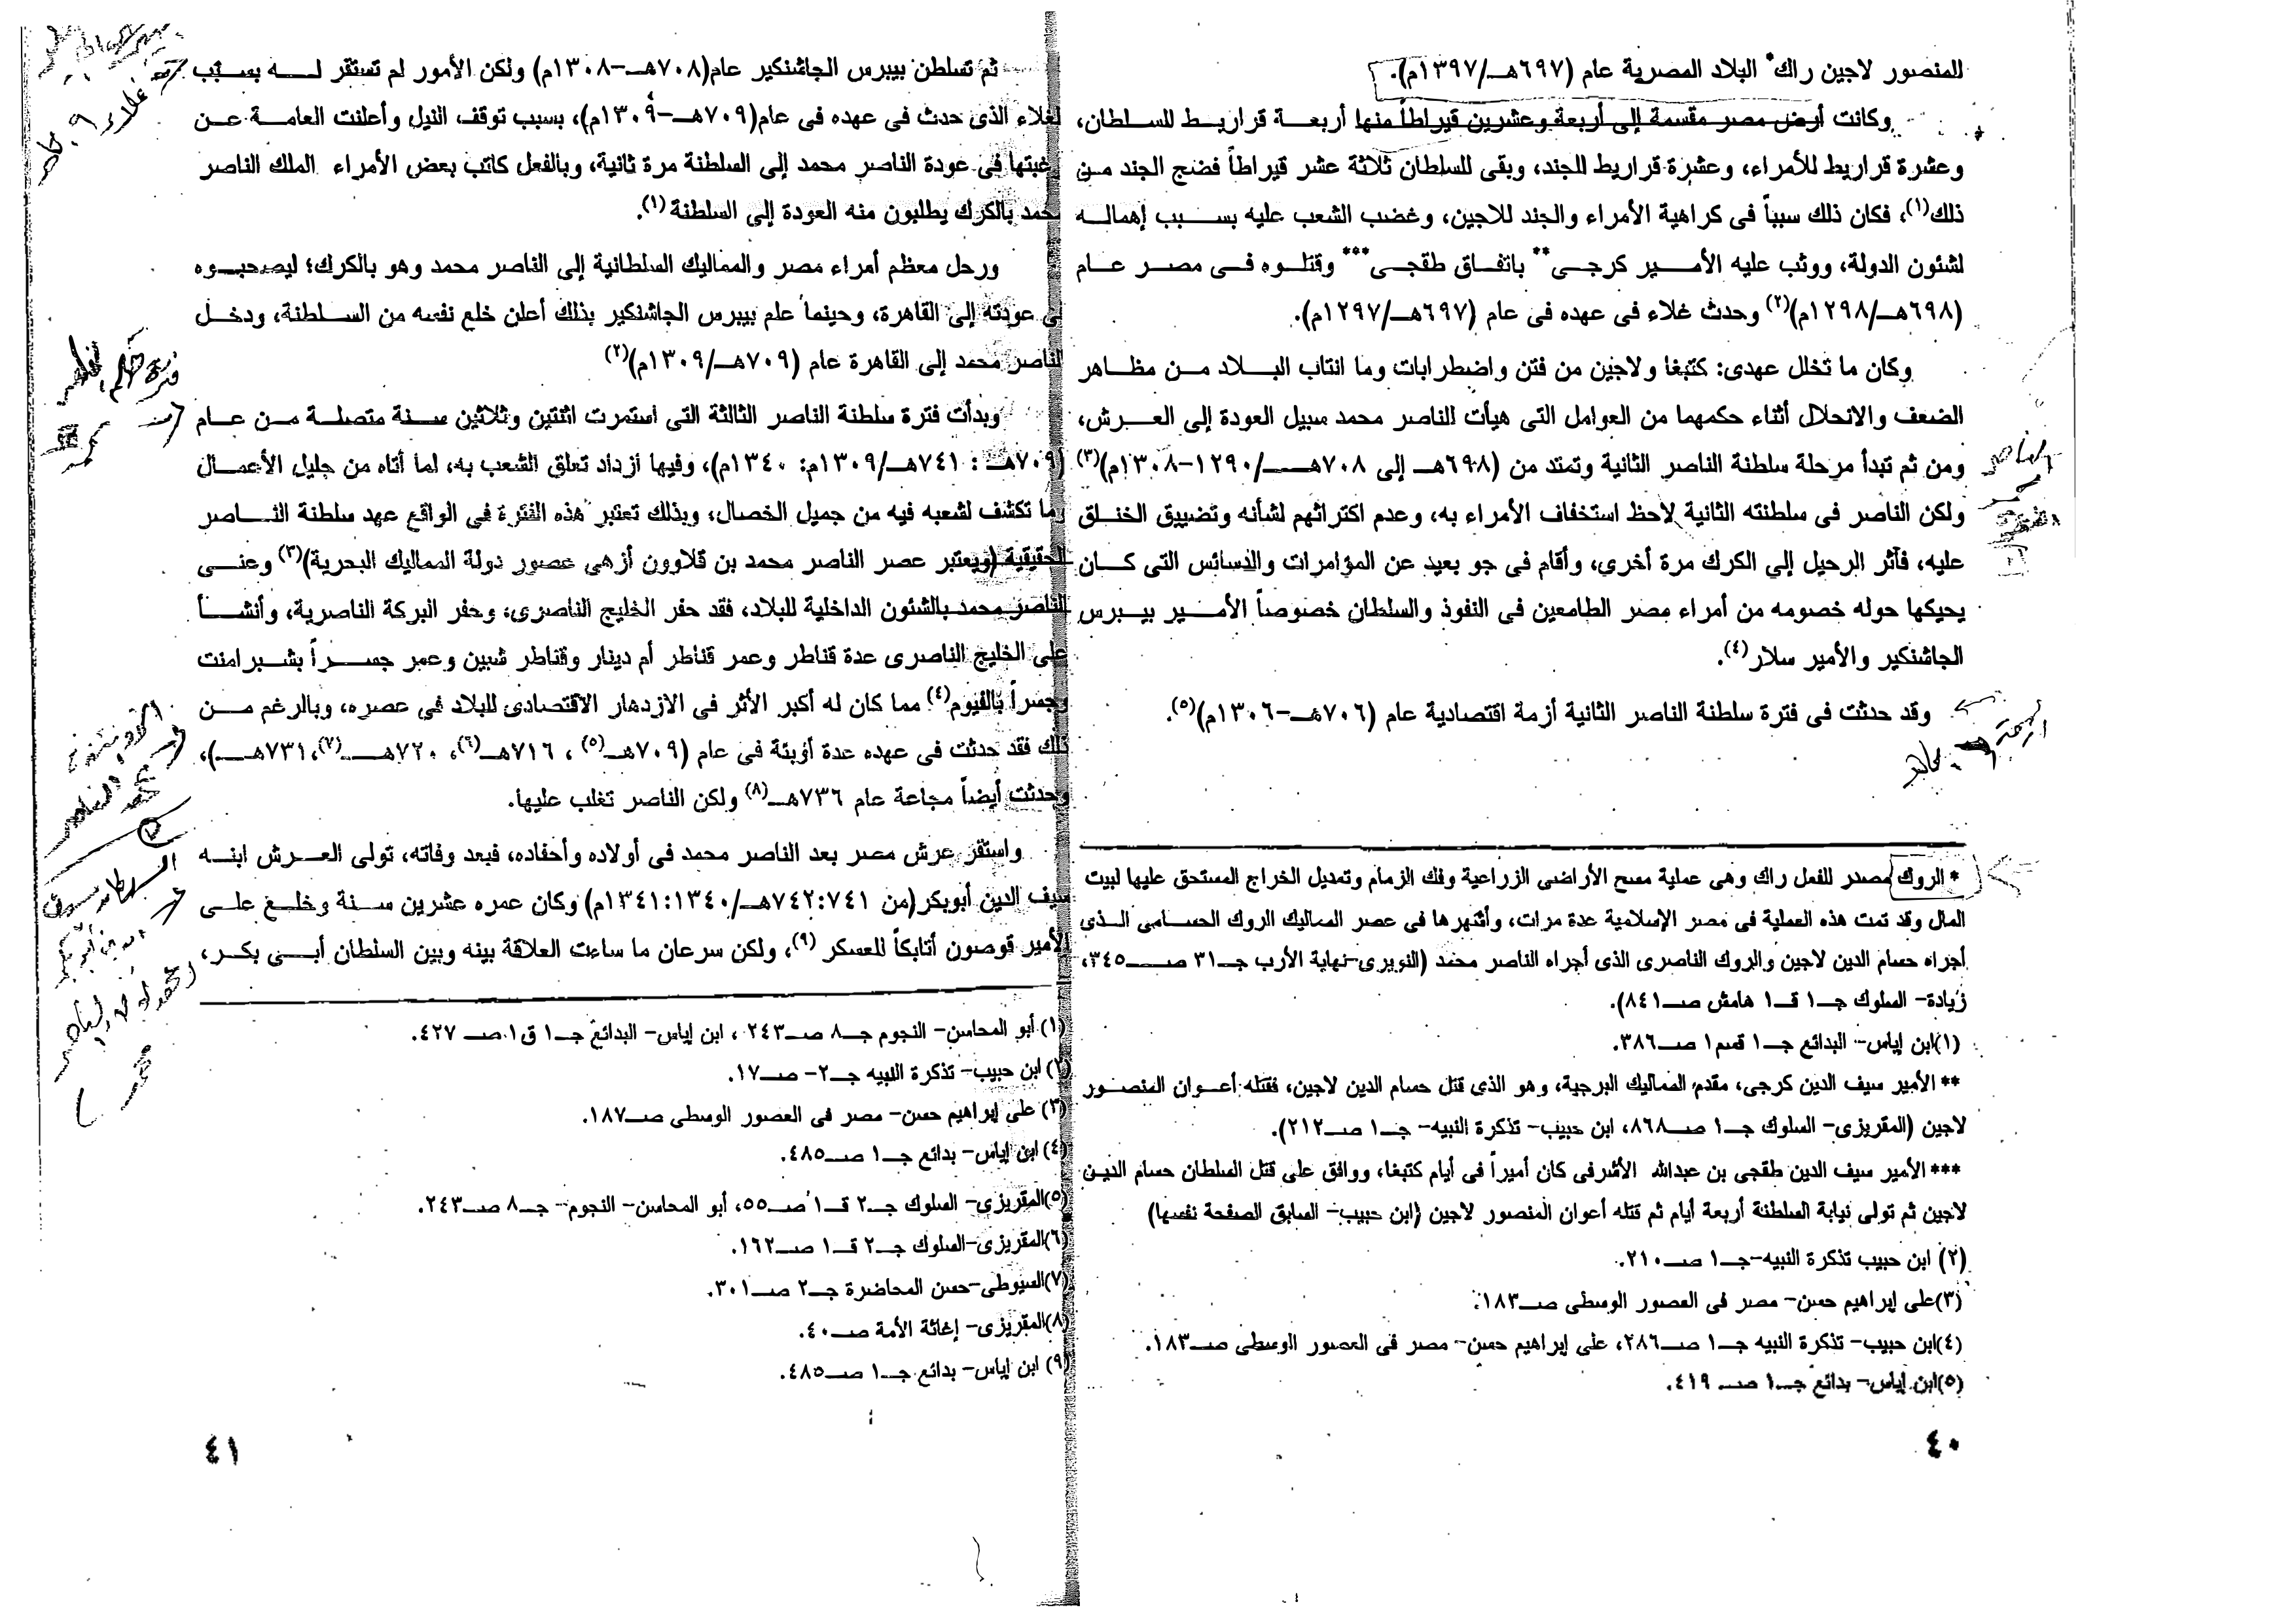 للمنصور لاجين راك* البلاد المصرية عام (٦٩٧هـ/١٣٩٧م).
وكانت أرض مصر مقسمة إلى أربعة وعشرين قيراطاً منها أربعة قراريط للسلطان،
وعشرة قراريط للأمراء، وعشرة قراريط للجند، وبقى للسلطان ثلاثة عشر قيراطاً فضج الجند من
ذلك(١)، فكان ذلك سبباً فى كراهية الأمراء والجند للاجين، وغضب الشعب عليه بسبب إهماله
لشئون الدولة، ووثب عليه الأمير كرجى** باتفاق طقجى*** وقتلوه فى مصر عام
(٦٩٨هـ/١٢٩٨م)(٢) وحدث غلاء فى عهده فى عام (٦٩٧هـ/١٢٩٧م).
وكان ما تخلل عهدى: كتبغا ولاجين من فتن واضطرابات وما انتاب البلاد من مظاهر
الضعف والانحلال أثناء حكمهما من العوامل التى هيأت للناصر محمد سبيل العودة إلى العرش،
ومن ثم تبدأ مرحلة سلطنة الناصر الثانية وتمتد من (٦٩٨هـ إلى ٧٠٨هـ/١٢٩٠-١٣٠٨م)(٣)
ولكن الناصر فى سلطنته الثانية لاحظ استخفاف الأمراء به، وعدم اكتراثهم لشأنه وتضييق الخناق
عليه، فآثر الرحيل إلي الكرك مرة أخري، وأقام فى جو بعيد عن المؤامرات والدسائس التى كان
يحيكها حوله خصومه من أمراء مصر الطامعين فى النفوذ والسلطان خصوصاً الأمير بيبرس
الجاشنكير والأمير سلار(٤).
وقد حدثت فى فترة سلطنة الناصر الثانية أزمة اقتصادية عام (٧٠٦هـ-١٣٠٦م)(٥).
* الروك مصدر للفعل راك وهى عملية مسح الأراضى الزراعية وفك الزمام وتعديل الخراج المستحق عليها لبيت
المال وقد تمت هذه العملية فى مصر الإسلامية عدة مرات، وأشهرها فى عصر المماليك الروك الحسامى الذى
أجراه حسام الدين لاجين والروك الناصرى الذى أجراه الناصر محمد (النويرى-نهاية الأرب جـ٣١ صـ٣٤٥،
زيادة- السلوك جـ١ قـ١ هامش صـ٨٤١).
(١)ابن إياس- البدائع جـ١ قسم١ صـ٣٨٦.
** الأمير سيف الدين كرجى، مقدم المماليك البرجية، وهو الذى قتل حسام الدين لاجين، فقتله أعوان المنصور
لاجين (المقريزى- السلوك جـ١ صـ٨٦٨، ابن حبيب- تذكرة النبيه- جـ١ صـ٢١٢).
*** الأمير سيف الدين طقجى بن عبدالله الأشرفى كان أميراً فى أيام كتبغا، ووافق على قتل السلطان حسام الدين
لاجين ثم تولى نيابة السلطنة أربعة أيام ثم قتله أعوان المنصور لاجين (ابن حبيب- السابق الصفحة نفسها)
(٢) ابن حبيب تذكرة النبيه-جـ١ صـ٢١٠.
(٣)على إبراهيم حسن- مصر فى العصور الوسطى صـ١٨٣.
(٤)ابن حبيب- تذكرة النبيه جـ١ صـ٢٨٦، على إبراهيم حسن- مصر فى العصور الوسطى صـ١٨٣.
(٥)ابن إياس- بدائع جـ١ صـ ٤١٩.
٤٠
ثم تسلطن بيبرس الجاشنكير عام(٧٠٨هـ-١٣٠٨م) ولكن الأمور لم تستقر له بسبب
لغلاء الذى حدث فى عهده فى عام(٧٠٩هـ-١٣٠٩م)، بسبب توقف النيل وأعلنت العامة عن
رغبتها فى عودة الناصر محمد إلى السلطنة مرة ثانية، وبالفعل كاتب بعض الأمراء الملك الناصر
محمد بالكرك يطلبون منه العودة إلى السلطنة(١).
ورحل معظم أمراء مصر والمماليك السلطانية إلى الناصر محمد وهو بالكرك؛ ليصحبوه
فى عودته إلى القاهرة، وحينما علم بيبرس الجاشنكير بذلك أعلن خلع نفسه من السلطنة، ودخل
الناصر محمد إلى القاهرة عام (٧٠٩هـ/١٣٠٩م)(٢)
وبدأت فترة سلطنة الناصر الثالثة التى استمرت اثنتين وثلاثين سنة متصلة من عام
(٧٠٩هـ : ٧٤١هـ/١٣٠٩م: ١٣٤٠م)، وفيها ازداد تعلق الشعب به، لما أتاه من جليل الأعمال
وما تكشف لشعبه فيه من جميل الخصال، وبذلك تعتبر هذه الفترة فى الواقع عهد سلطنة الناصر
الحقيقية (ويعتبر عصر الناصر محمد بن قلاوون أزهى عصور دولة المماليك البحرية)(٣) وعنى
الناصر محمد بالشئون الداخلية للبلاد، فقد حفر الخليج الناصرى، وحفر البركة الناصرية، وأنشأ
على الخليج الناصرى عدة قناطر وعمر قناطر أم دينار وقناطر شبين وعمر جسراً بشبرامنت
وجسراً بالفيوم(٤) مما كان له أكبر الأثر فى الازدهار الاقتصادى للبلاد فى عصره، وبالرغم من
ذلك فقد حدثت فى عهده عدة أوبئة فى عام (٧٠٩هـ(٥)، ٧١٦هـ(٦)، ٧٢٠هـ(٧)، ٧٣١هـ)،
وحدثت أيضاً مجاعة عام ٧٣٦هـ(٨) ولكن الناصر تغلب عليها.
واستقر عرش مصر بعد الناصر محمد فى أولاده وأحفاده، فبعد وفاته، تولى العرش ابنه
سيف الدين أبوبكر(من ٧٤٢:٧٤١هـ/١٣٤١:١٣٤٠م) وكان عمره عشرين سنة وخلع على
الأمير قوصون أتابكاً للعسكر (٩)، ولكن سرعان ما ساءت العلاقة بينه وبين السلطان أبى بكر،
(١) أبو المحاسن- النجوم جـ٨ صـ٢٤٣ ، ابن إياس- البدائع جـ١ ق١ صـ ٤٢٧.
(٢) ابن حبيب- تذكرة النبيه جـ٢- صـ١٧.
(٣) على إبراهيم حسن- مصر فى العصور الوسطى صـ١٨٧.
(٤) ابن إياس- بدائع جـ١ صـ٤٨٥.
(٥)المقريزى- السلوك جـ٢ قـ١ صـ٥٥، أبو المحاسن- النجوم- جـ٨ صـ٢٤٣.
(٦)المقريزى-السلوك جـ٢ قـ١ صـ١٦٢.
(٧)السيوطى-حسن المحاضرة جـ٢ صـ٣٠١.
(٨)المقريزى- إغاثة الأمة صـ٤٠.
(٩) ابن إياس- بدائع جـ١ صـ٤٨٥.
٤١